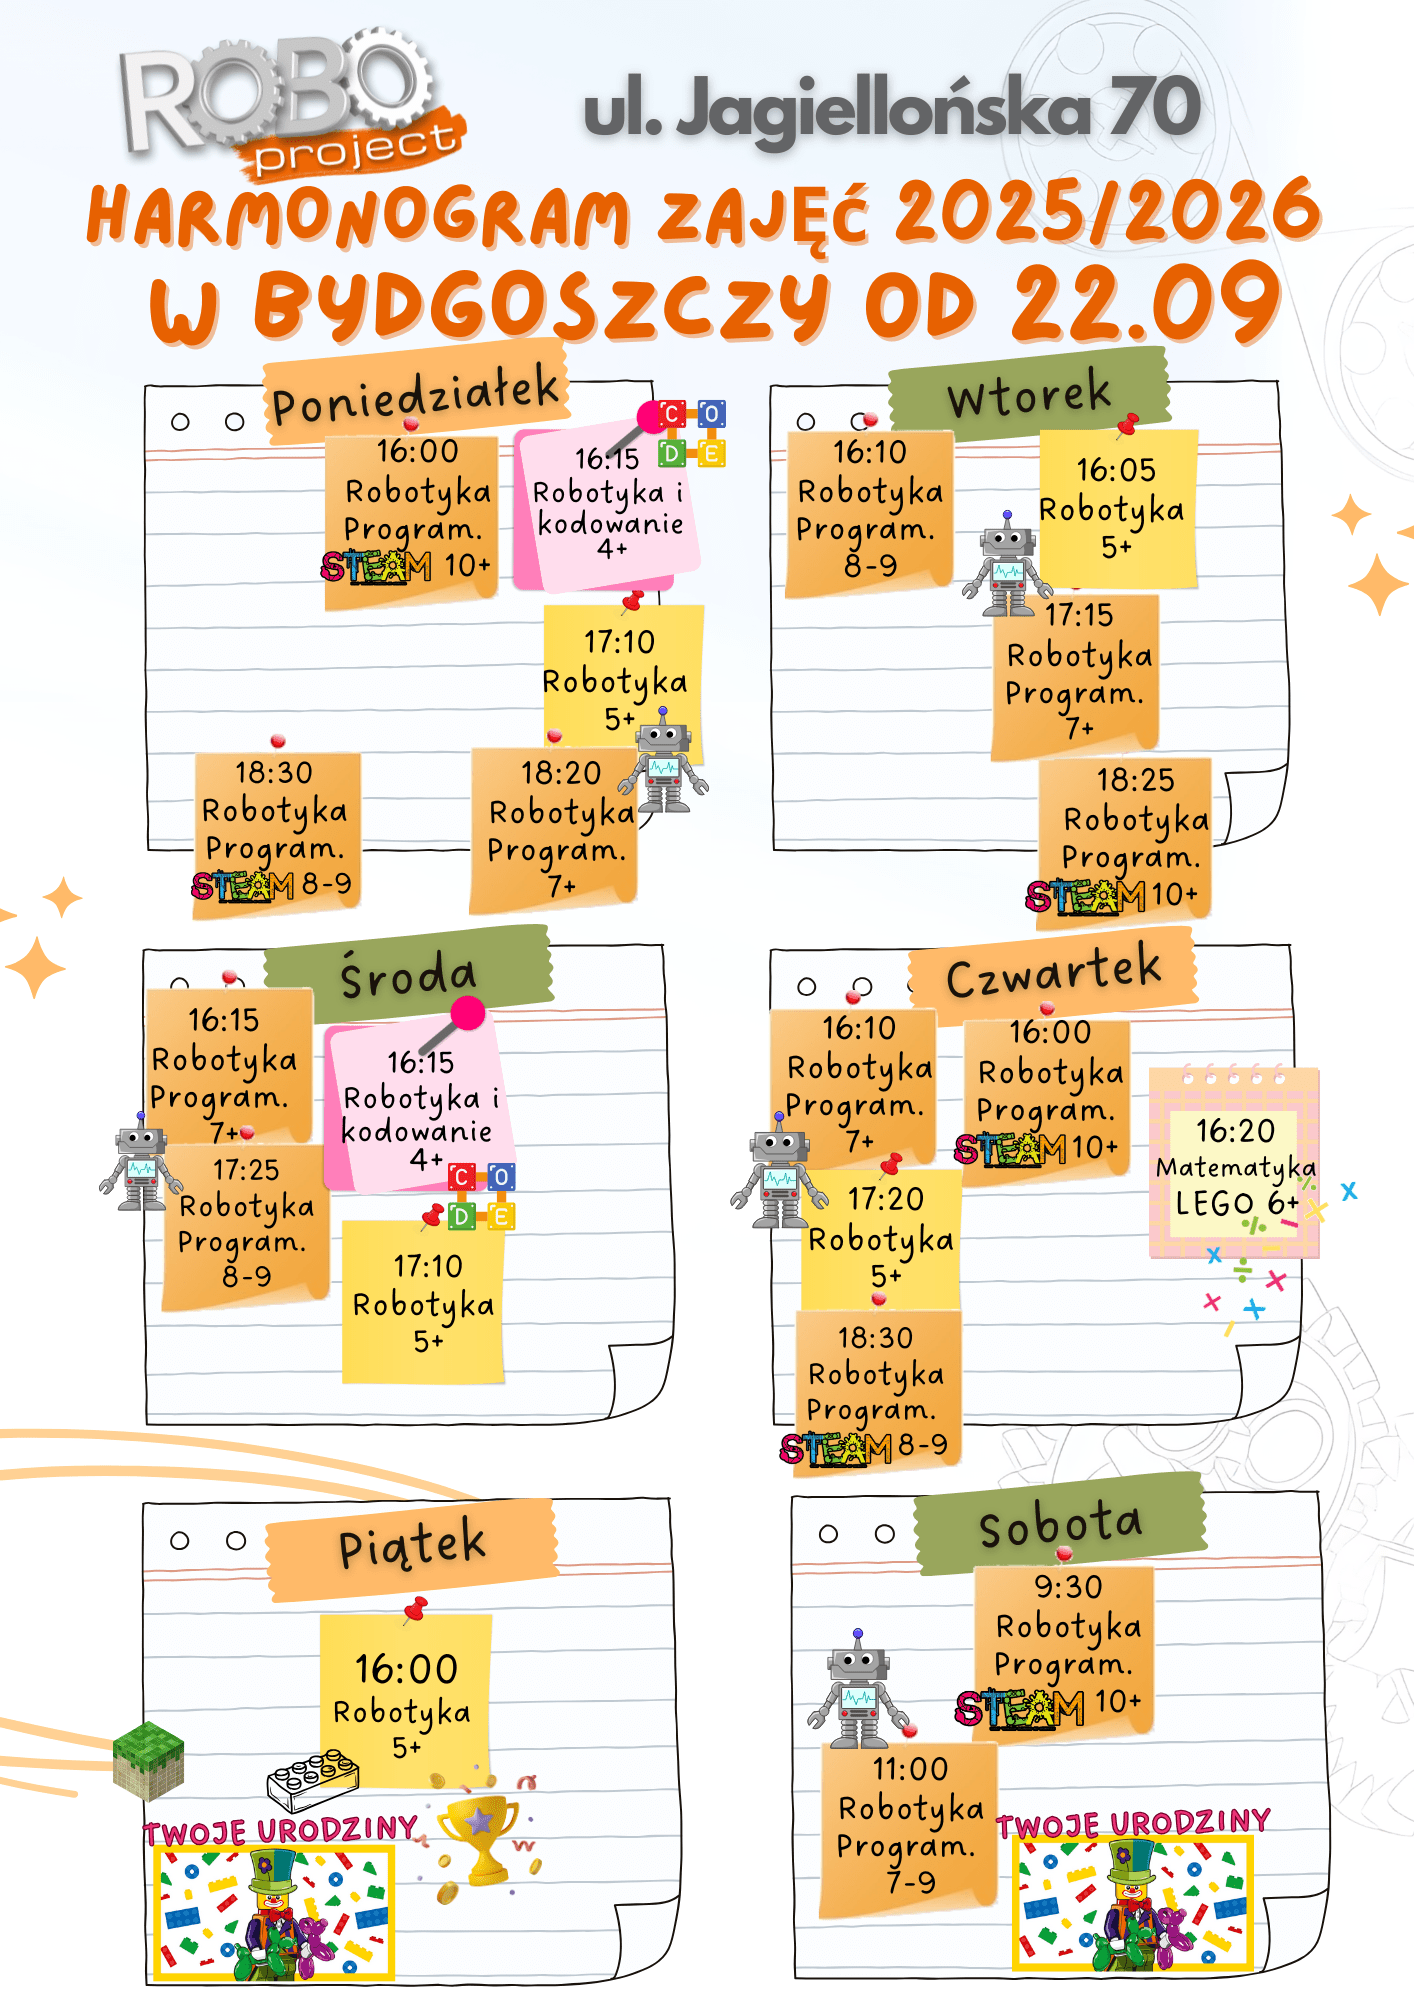 ROBO
project
ul. Jagiellońska 70
HARMONOGRAM ZAJĘĆ 2025/2026
W BYDGOSZCZY OD 22.09
Poniedziałek
16:00
Robotyka
Program.
STEAM 10+
16:15
Robotyka i
kodowanie
4+
C O
D E
17:10
Robotyka
5+
18:30
Robotyka
Program.
STEAM 8-9
18:20
Robotyka
Program.
7+
Wtorek
16:10
Robotyka
Program.
8-9
16:05
Robotyka
5+
17:15
Robotyka
Program.
7+
18:25
Robotyka
Program.
STEAM 10+
Środa
16:15
Robotyka
Program.
7+
16:15
Robotyka i
kodowanie
4+
C O
D E
17:25
Robotyka
Program.
8-9
17:10
Robotyka
5+
Czwartek
16:10
Robotyka
Program.
7+
16:00
Robotyka
Program.
STEAM 10+
16:20
Matematyka
LEGO 6+
17:20
Robotyka
5+
18:30
Robotyka
Program.
STEAM 8-9
Piątek
16:00
Robotyka
5+
TWOJE URODZINY
Sobota
9:30
Robotyka
Program.
STEAM 10+
11:00
Robotyka
Program.
7-9
TWOJE URODZINY